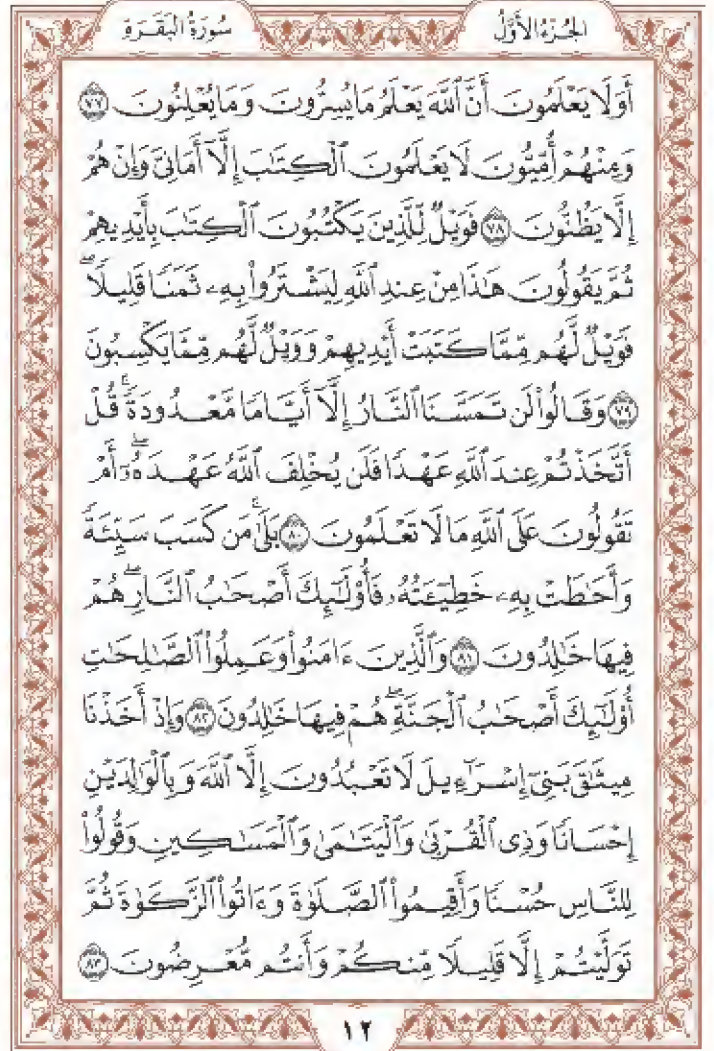 الجُزْءُ الأَوَّلُ
سُورَةُ البَقَرَةِ
أَوَلَا يَعْلَمُونَ أَنَّ ٱللَّهَ يَعْلَمُ مَا يُسِرُّونَ وَمَا يُعْلِنُونَ ٧٧
وَمِنْهُمْ أُمِّيُّونَ لَا يَعْلَمُونَ ٱلْكِتَٰبَ إِلَّآ أَمَانِىَّ وَإِنْ هُمْ
إِلَّا يَظُنُّونَ ٧٨ فَوَيْلٌ لِّلَّذِينَ يَكْتُبُونَ ٱلْكِتَٰبَ بِأَيْدِيهِمْ
ثُمَّ يَقُولُونَ هَٰذَا مِنْ عِندِ ٱللَّهِ لِيَشْتَرُوا۟ بِهِۦ ثَمَنًا قَلِيلًا ۖ
فَوَيْلٌ لَّهُم مِّمَّا كَتَبَتْ أَيْدِيهِمْ وَوَيْلٌ لَّهُم مِّمَّا يَكْسِبُونَ
٧٩ وَقَالُوا۟ لَن تَمَسَّنَا ٱلنَّارُ إِلَّآ أَيَّامًا مَّعْدُودَةً ۚ قُلْ
أَتَّخَذْتُمْ عِندَ ٱللَّهِ عَهْدًا فَلَن يُخْلِفَ ٱللَّهُ عَهْدَهُۥٓ ۖ أَمْ
تَقُولُونَ عَلَى ٱللَّهِ مَا لَا تَعْلَمُونَ ٨٠ بَلَىٰ ۚ مَن كَسَبَ سَيِّئَةً
وَأَحَٰطَتْ بِهِۦ خَطِيٓـَٔتُهُۥ فَأُو۟لَٰٓئِكَ أَصْحَٰبُ ٱلنَّارِ ۖ هُمْ
فِيهَا خَٰلِدُونَ ٨١ وَٱلَّذِينَ ءَامَنُوا۟ وَعَمِلُوا۟ ٱلصَّٰلِحَٰتِ
أُو۟لَٰٓئِكَ أَصْحَٰبُ ٱلْجَنَّةِ ۖ هُمْ فِيهَا خَٰلِدُونَ ٨٢ وَإِذْ أَخَذْنَا
مِيثَٰقَ بَنِىٓ إِسْرَٰٓءِيلَ لَا تَعْبُدُونَ إِلَّا ٱللَّهَ وَبِٱلْوَٰلِدَيْنِ
إِحْسَانًا وَذِى ٱلْقُرْبَىٰ وَٱلْيَتَٰمَىٰ وَٱلْمَسَٰكِينِ وَقُولُوا۟
لِلنَّاسِ حُسْنًا وَأَقِيمُوا۟ ٱلصَّلَوٰةَ وَءَاتُوا۟ ٱلزَّكَوٰةَ ثُمَّ
تَوَلَّيْتُمْ إِلَّا قَلِيلًا مِّنكُمْ وَأَنتُم مُّعْرِضُونَ ٨٣
١٢